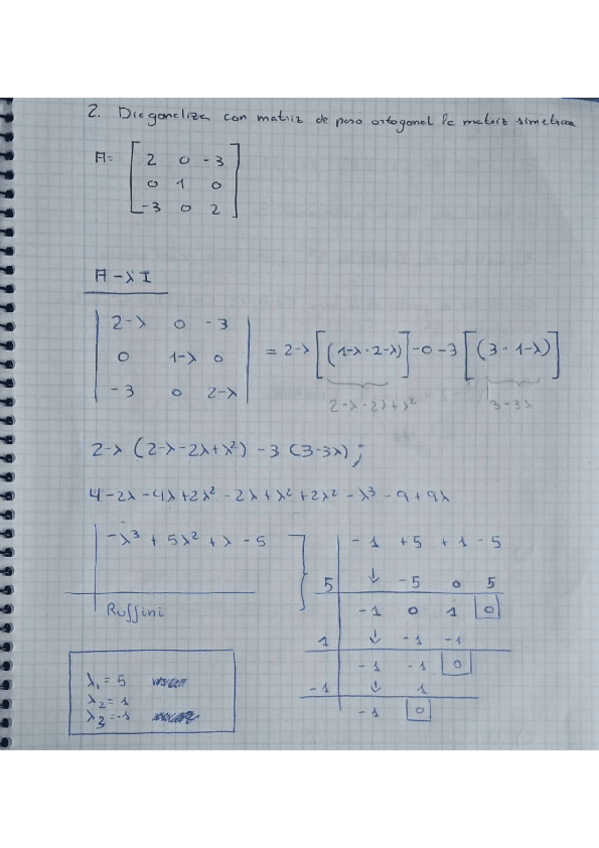 2. Diagonaliza con matriz de paso ortogonal la matriz simetrica
A= [ 2 0 -3
0 1 0
-3 0 2 ]
A-λI
| 2-λ 0 -3 |
| 0 1-λ 0 | = 2-λ [(1-λ·2-λ)]-0-3 [(3·1-λ)]
| -3 0 2-λ |
2-λ-2λ+λ² 3-3λ
2-λ (2-λ-2λ+λ²) -3 (3-3λ);
4-2λ-4λ+2λ²-2λ+λ²+2λ²-λ³-9+9λ
-λ³ + 5λ² + λ - 5
Ruffini
-1 +5 +1 -5
5 ↓ -5 0 5
-1 0 1 0
1 ↓ -1 -1
-1 -1 0
-1 ↓ 1
-1 0
λ₁ = 5
λ₂ = 1
λ₃ = -1